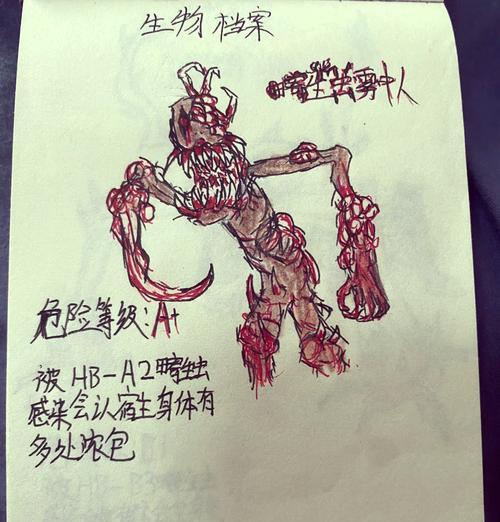 生物档案
雾中人
危险等级:A+
被HB-A2
感染会认宿主身体有
多处浓包